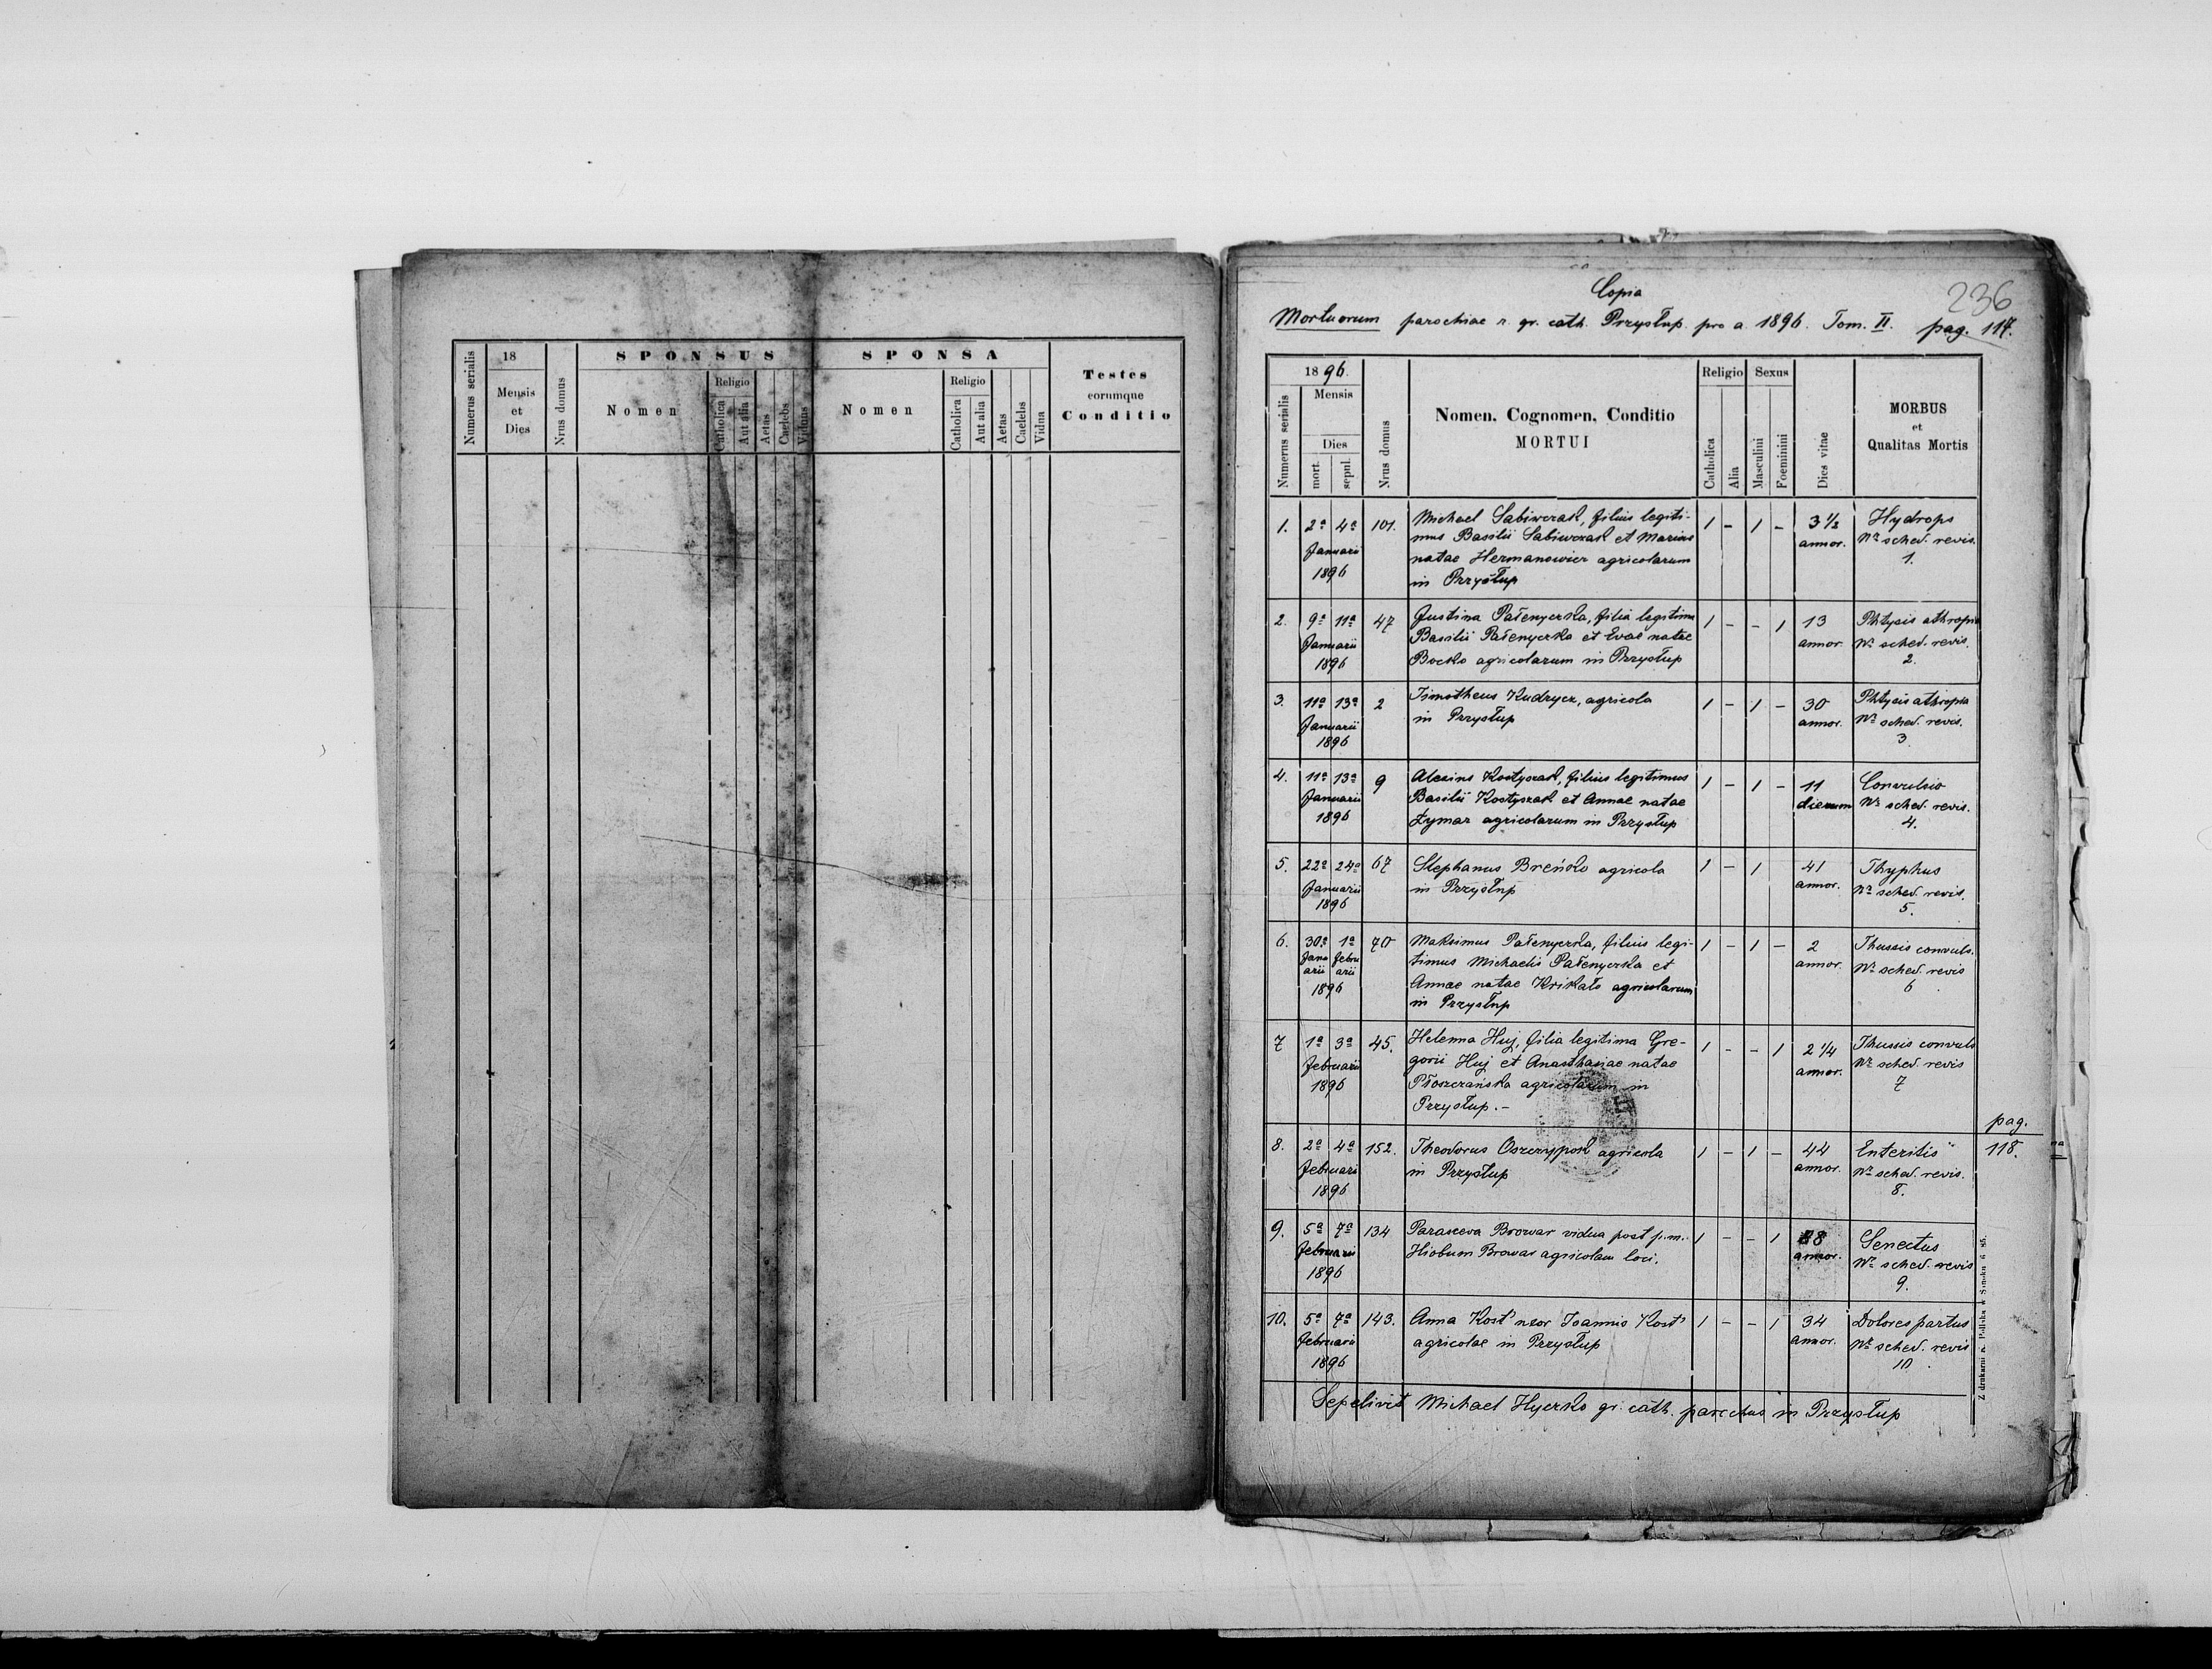 Numerus serialis
18
Mensis
et
Dies
Nrus domus
SPONSUS
Nomen
Religio
Catholica
Aut alia
Aetas
Caelebs
Viduus
SPONSA
Nomen
Religio
Catholica
Aut alia
Aetas
Caelebs
Vidua
Testes
eorumque
Conditio
236
Copia
Mortuorum parochiae r. gr. cath. Przysłup pro a. 1896. Tom. II. pag. 117.
Numerus serialis
1896.
Mensis
Dies
mort.
sepul.
Nrus domus
Nomen, Cognomen, Conditio
MORTUI
Religio
Catholica
Alia
Sexus
Masculini
Foeminini
Dies vitae
MORBUS
et
Qualitas Mortis
1. 2a 4a 101. Michael Sabiwczak, filius legiti- 1 - 1 - 3 1/2 Hydrops
Januarii mus Basilii Sabiwczak et Mariae annor. Nr sched. revis.
1896 natae Hermanowicz agricolarum 1.
in Przysłup
2. 9a 11a 47 Justina Pałenyczka, filia legitima 1 - - 1 13 Phtysis athropia
Januarii Basilii Pałenyczka et Evae natae annor Nr sched. revis.
1896 Bocko agricolarum in Przysłup 2.
3. 11a 13a 2 Timotheus Kudrycz, agricola 1 - 1 - 30 Phtysis athropia
Januarii in Przysłup annor. Nr sched. revis.
1896 3.
4. 11a 13a 9 Alexius Kostyszak, filius legitimus 1 - 1 - 11 Convulsio
Januarii Basilii Kostyszak et Annae natae dierum Nr sched. revis.
1896 Łymar agricolarum in Przysłup 4.
5. 22a 24a 67 Stephanus Breńko agricola 1 - 1 41 Thyphus
Januarii in Przysłup annor. Nr sched. revis.
1896 5.
6. 30a 1a 70 Maksimus Pałenyczka, filius legi- 1 - 1 - 2 Thussis convuls.
Janu Febru timus Michaelis Pałenyczka et annor. Nr sched. revis
arii arii Annae natae Krikało agricolarum 6
1896 in Przysłup
7 1a 3a 45. Helenna Huj, filia legitima Gre- 1 - - 1 2 1/4 Thussis convuls
Februarii gorii Huj et Anasthasiae natae annor. Nr sched. revis
1896 Płoszczańska agricolarum in 7
Przysłup.-
pag.
118.
8. 2a 4a 152. Theodorus Oszczypok agricola 1 - 1 - 44 Enteritis
Februarii in Przysłup annor. Nr sched. revis.
1896 8.
9. 5a 7a 134 Parasceva Browar vidua post p.m. 1 - - 1 annor. Senectus
Februarii Hiobum Browar agricolam loci. Nr sched. revis
1896 9.
10. 5a 7a 143. Anna Kost' uxor Joannis Kost' 1 - - 1 34 Dolores partus
Februarii agricolae in Przysłup annor. Nr sched. revis
1896 10.
Sepelivit Michael Hyczko gr. cath. parochus in Przysłup
Z drukarni K. Pollaka w Sanoku